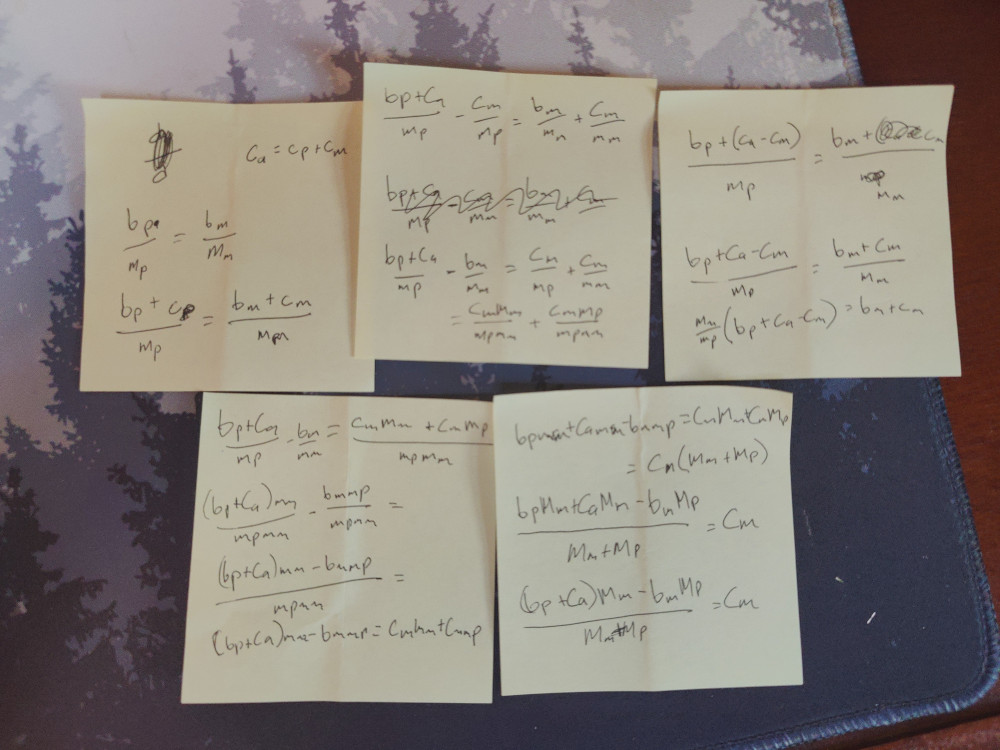 c_a = c_p + c_m
b_p/m_p = b_m/M_m
(b_p + c_p)/m_p = (b_m + c_m)/m_m
(b_p + C_a)/m_p - C_m/m_p = b_m/m_m + C_m/m_m
(b_p + C_a)/m_p - b_m/m_m = C_m/m_p + C_m/m_m
= C_m M_m/m_p m_m + C_m M_p/m_p m_m
(b_p + (C_a - C_m))/m_p = (b_m + C_m)/M_m
(b_p + C_a - C_m)/M_p = (b_m + C_m)/M_m
M_m/m_p (b_p + C_a - C_m) = b_m + C_m
(b_p + C_a)/m_p - b_m/m_m = (C_m M_m + C_m M_p)/m_p m_m
(b_p + C_a)m_m/m_p m_m - b_m m_p/m_p m_m =
((b_p + C_a)m_m - b_m m_p)/m_p m_m =
(b_p + C_a)m_m - b_m m_p = C_m m_m + C_m m_p
b_p m_m + C_a m_m - b_m m_p = C_m M_m + C_m M_p
= C_m(M_m + M_p)
(b_p M_m + C_a M_m - b_m M_p)/(M_m + M_p) = C_m
((b_p + C_a)M_m - b_m M_p)/(M_m + M_p) = C_m